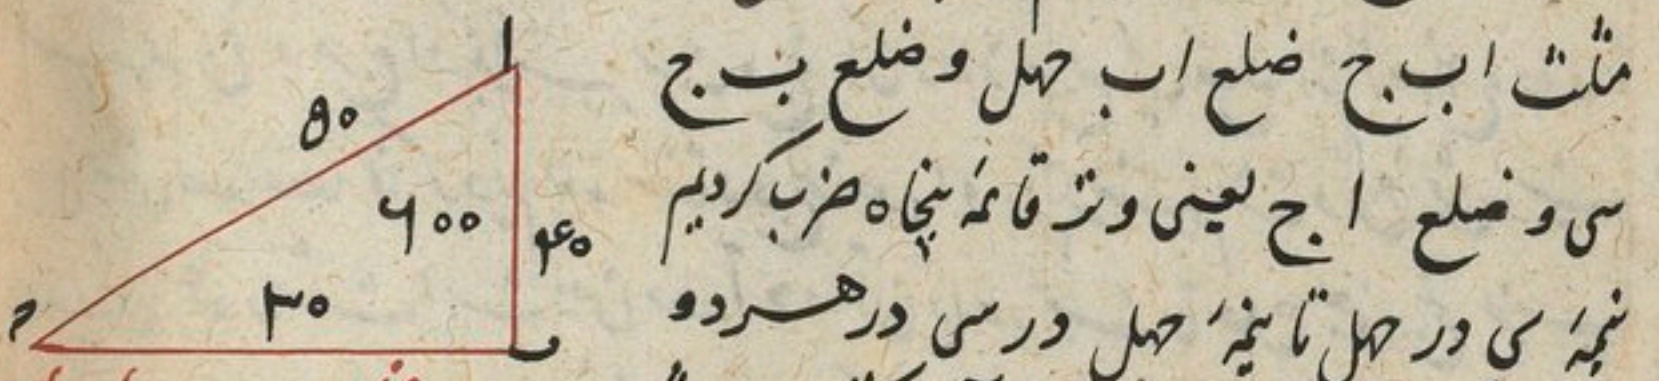 مثلث ا ب ج ضلع ا ب چهل و ضلع ب ج
سی و ضلع ا ج یعنی وتر قائمه پنجاه ضرب کردیم
نیمهٔ سی در چهل تا نیمهٔ چهل در سی در هر دو
ا
۵۰
۶۰۰
۴۰
۳۰
ب